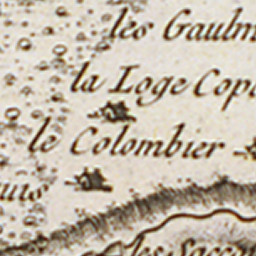 les Gaulm
la Loge Cop
le Colombier
uts
les Sacco